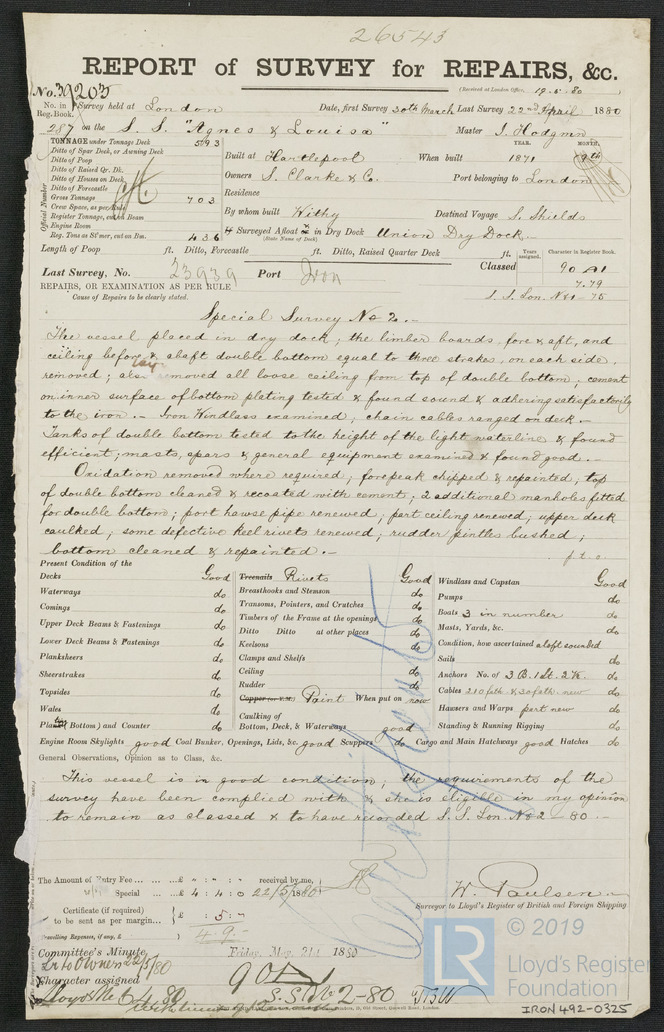 26543
REPORT of SURVEY for REPAIRS, &c.
(Received at London Office, 19.5.80
No. 39203
No. in Reg. Book. Survey held at London Date, first Survey 30th March Last Survey 22nd April 1880
287 on the S. S. "Agnes & Louisa" Master J. Hodgson
TONNAGE under Tonnage Deck 593
Ditto of Spar Deck, or Awning Deck
Ditto of Poop
Ditto of Raised Qr. Dk.
Ditto of Houses on Deck
Ditto of Forecastle
Gross Tonnage 703
Crew Space, as per Rule
Register Tonnage, cut on Beam
Engine Room
Reg. Tons as St'mer, cut on Bm. 436
Official Number
YEAR. MONTH.
Built at Hartlepool When built 1871 9th
Owners S. Clarke & Co. Port belonging to London
Residence
By whom built Withy Destined Voyage S. Shields
If Surveyed Afloat or in Dry Dock Union Dry Dock.
(State Name of Dock)
Length of Poop ft. Ditto, Forecastle ft. Ditto, Raised Quarter Deck ft.
Years assigned. Character in Register Book.
Last Survey, No. 23939 Port Iron Classed 90 A1
7.79
S. S. Lon. No 1 - 75
REPAIRS, OR EXAMINATION AS PER RULE
Cause of Repairs to be clearly stated.
Special Survey No 2.-
The vessel placed in dry dock; the limber boards, fore & aft, and
ceiling before & abaft double bottom equal to three strakes, on each side
removed; also removed all loose ceiling from top of double bottom; cement
on inner surface of bottom plating tested & found sound & adhering satisfactorily
to the iron.- Iron Windlass examined; chain cables ranged on deck.-
Tanks of double bottom tested to the height of the light waterline & found
efficient; masts, spars & general equipment examined & found good.-
Oxidation removed where required; forepeak chipped & repainted; top
of double bottom cleaned & recoated with cement; 2 additional manholes fitted
for double bottom; port hawse pipe renewed, part ceiling renewed; upper deck
caulked; some defective keel rivets renewed; rudder pintles bushed;
bottom cleaned & repainted.-
p t o
Present Condition of the
Decks Good
Waterways do
Comings do
Upper Deck Beams & Fastenings do
Lower Deck Beams & Fastenings do
Planksheers do
Sheerstrakes do
Topsides do
Wales do
Plating Bottom) and Counter do
Treenails Rivets Good
Breasthooks and Stemson do
Transoms, Pointers, and Crutches do
Timbers of the Frame at the openings do
Ditto Ditto at other places do
Keelsons do
Clamps and Shelfs do
Ceiling do
Rudder do
Copper Paint When put on now
Caulking of
Bottom, Deck, & Waterways good
Windlass and Capstan Good
Pumps do
Boats 3 in number do
Masts, Yards, &c. do
Condition, how ascertained aloft sounded
Sails do
Anchors No. of 3 B. 1 St. 2 K. do
Cables 210 fath & 30 fath new do
Hawsers and Warps part new do
Standing & Running Rigging do
Engine Room Skylights good Coal Bunker, Openings, Lids, &c. good Scuppers do Cargo and Main Hatchways good Hatches do
General Observations, Opinion as to Class, &c.
This vessel is in good condition; the requirements of the
survey have been complied with & she is eligible in my opinion
to remain as classed & to have recorded S. S. Lon. No 2 - 80.-
The Amount of Entry Fee ... £ " : " : " received by me,
Special ... £ 4 : 4 : 0 22/5/1880
Certificate (if required) to be sent as per margin... £ : 5 :
4.9.-
Travelling Expenses, if any, £
W. Paulsen
Surveyor to Lloyd's Register of British and Foreign Shipping
Committee's Minute Friday, May 21st 1880
Character assigned 90 A1
S.S. No 2-80
© 2019
LR
Lloyd's Register
Foundation
IRON492-0325